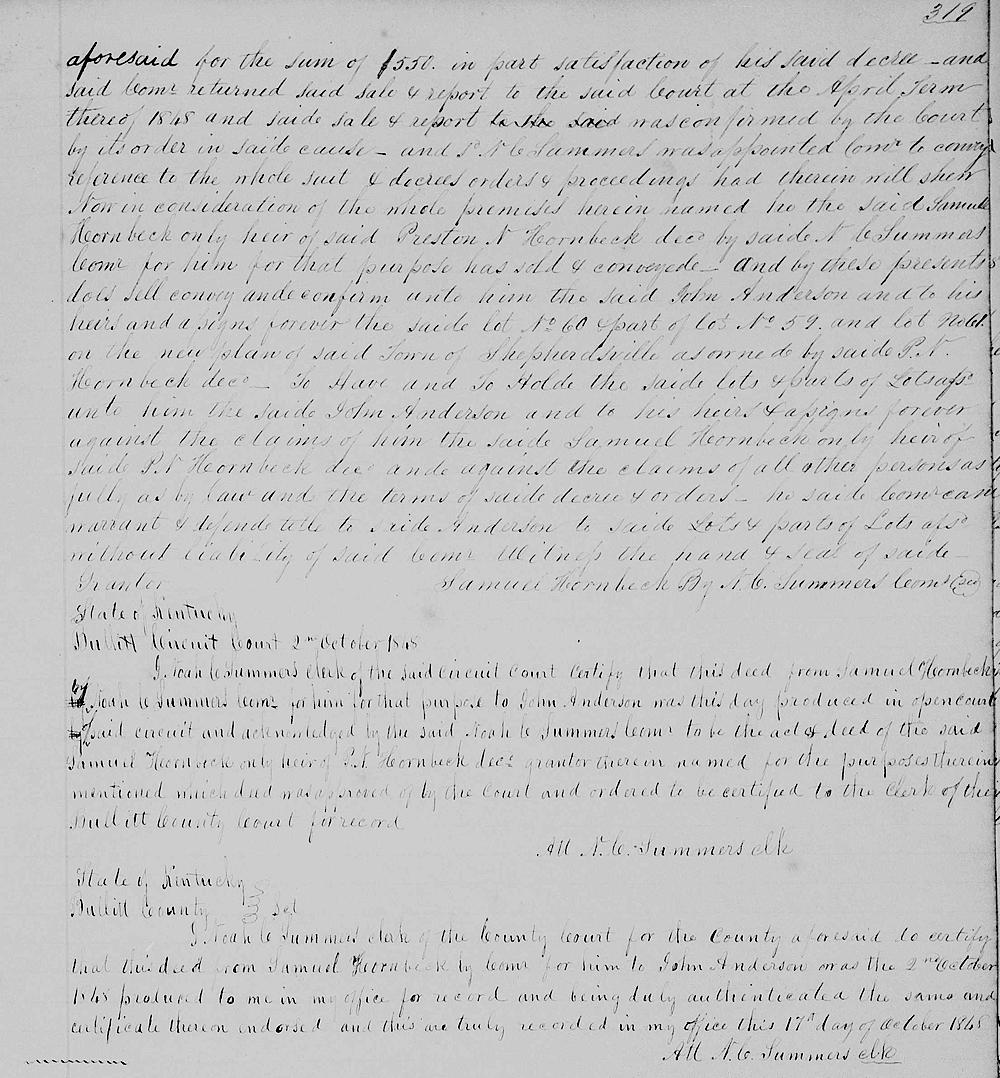 319
aforesaid for the sum of $550. in part satisfaction of his said decree - and
said Comr returned said sale & report to the said Court at the April Term
thereof 1848 and saide sale & report to the said was confirmed by the Court
by its order in saide cause - and sd N C Summers was appointed Comr to convey
reference to the whole suit & decrees orders & proceedings had therein will shew
Now in consideration of the whole premises herein named he the said Samuel
Hornbeck only heir of said Preston N Hornbeck decd by saide N C Summers
Comr for him for that purpose has sold & conveyede - and by these presents
does sell convey ande confirm unto him the said John Anderson and to his
heirs and assigns forever the saide lot No 60 & part of lot No 59. and lot No 61.
on the new plan of said Town of Shepherdsville as owned by saide P. N.
Hornbeck decd - To Have and To Holde the saide lots & parts of Lots afsd
unto him the saide John Anderson and to his heirs & assigns forever
against the claims of him the saide Samuel Hornbeck only heir of
saide P. N Hornbeck decd ande against the claims of all other persons as
fully as by law and the terms of saide decree & orders - he saide Comr can
warrant & defende title to saide Anderson to saide Lots & parts of Lots afsd
without liability of said Comr Witness the hand & seal of saide -
Grantor Samuel Hornbeck By N. C. Summers Comr
State of Kentucky
Bullitt Circuit Court 2nd October 1848
I Noah C Summers Clerk of the said Circuit Court Certify that this deed from Samuel Hornbeck
by Noah C Summers Comr for him for that purpose to John Anderson was this day produced in open court
said circuit and acknowledged by the said Noah C Summers Comr to be the act & deed of the said
Samuel Hornbeck only heir of P. N Hornbeck decd grantor therein named for the purposes therein
mentioned which deed was approved of by the Court and ordered to be certified to the Clerk of the
Bullitt County Court for record
Att N. C. Summers clk
State of Kentucky
Bullitt County Sct
I Noah C Summers clerk of the County Court for the County aforesaid do certify
that this deed from Samuel Hornbeck by Comr for him to John Anderson was the 2nd October
1848 produced to me in my office for record and being duly authenticated the same and
certificate thereon endorsed and this are truly recorded in my office this 17th day of October 1848
Att N. C. Summers clk